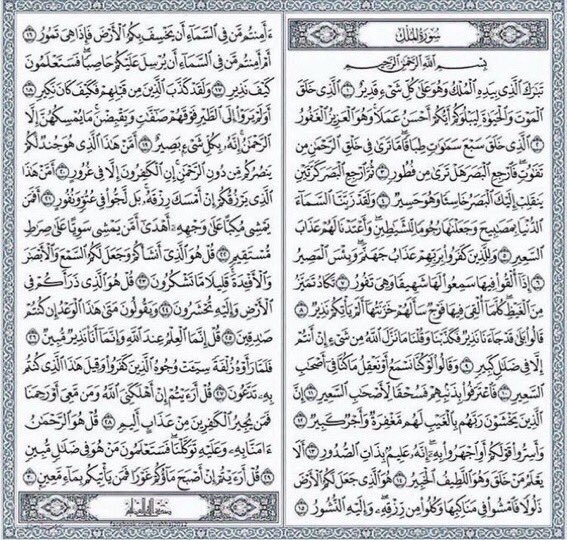 سُورَةُ المُلْكِ
بِسْمِ اللَّهِ الرَّحْمَٰنِ الرَّحِيمِ
تَبَٰرَكَ ٱلَّذِي بِيَدِهِ ٱلْمُلْكُ وَهُوَ عَلَىٰ كُلِّ شَيْءٍ قَدِيرٌ ١ ٱلَّذِي خَلَقَ
ٱلْمَوْتَ وَٱلْحَيَوٰةَ لِيَبْلُوَكُمْ أَيُّكُمْ أَحْسَنُ عَمَلًا وَهُوَ ٱلْعَزِيزُ ٱلْغَفُورُ
٢ ٱلَّذِي خَلَقَ سَبْعَ سَمَٰوَٰتٍ طِبَاقًا مَّا تَرَىٰ فِي خَلْقِ ٱلرَّحْمَٰنِ مِن
تَفَٰوُتٍ فَٱرْجِعِ ٱلْبَصَرَ هَلْ تَرَىٰ مِن فُطُورٍ ٣ ثُمَّ ٱرْجِعِ ٱلْبَصَرَ كَرَّتَيْنِ
يَنقَلِبْ إِلَيْكَ ٱلْبَصَرُ خَاسِئًا وَهُوَ حَسِيرٌ ٤ وَلَقَدْ زَيَّنَّا ٱلسَّمَآءَ
ٱلدُّنْيَا بِمَصَٰبِيحَ وَجَعَلْنَٰهَا رُجُومًا لِّلشَّيَٰطِينِ وَأَعْتَدْنَا لَهُمْ عَذَابَ
ٱلسَّعِيرِ ٥ وَلِلَّذِينَ كَفَرُوا۟ بِرَبِّهِمْ عَذَابُ جَهَنَّمَ وَبِئْسَ ٱلْمَصِيرُ
٦ إِذَآ أُلْقُوا۟ فِيهَا سَمِعُوا۟ لَهَا شَهِيقًا وَهِيَ تَفُورُ ٧ تَكَادُ تَمَيَّزُ
مِنَ ٱلْغَيْظِ كُلَّمَآ أُلْقِيَ فِيهَا فَوْجٌ سَأَلَهُمْ خَزَنَتُهَآ أَلَمْ يَأْتِكُمْ نَذِيرٌ ٨
قَالُوا۟ بَلَىٰ قَدْ جَآءَنَا نَذِيرٌ فَكَذَّبْنَا وَقُلْنَا مَا نَزَّلَ ٱللَّهُ مِن شَيْءٍ إِنْ أَنتُمْ
إِلَّا فِي ضَلَٰلٍ كَبِيرٍ ٩ وَقَالُوا۟ لَوْ كُنَّا نَسْمَعُ أَوْ نَعْقِلُ مَا كُنَّا فِيٓ أَصْحَٰبِ
ٱلسَّعِيرِ ١٠ فَٱعْتَرَفُوا۟ بِذَنۢبِهِمْ فَسُحْقًا لِّأَصْحَٰبِ ٱلسَّعِيرِ ١١ إِنَّ
ٱلَّذِينَ يَخْشَوْنَ رَبَّهُم بِٱلْغَيْبِ لَهُم مَّغْفِرَةٌ وَأَجْرٌ كَبِيرٌ ١٢
وَأَسِرُّوا۟ قَوْلَكُمْ أَوِ ٱجْهَرُوا۟ بِهِۦٓ إِنَّهُۥ عَلِيمٌۢ بِذَاتِ ٱلصُّدُورِ ١٣ أَلَا
يَعْلَمُ مَنْ خَلَقَ وَهُوَ ٱللَّطِيفُ ٱلْخَبِيرُ ١٤ هُوَ ٱلَّذِي جَعَلَ لَكُمُ ٱلْأَرْضَ
ذَلُولًا فَٱمْشُوا۟ فِي مَنَاكِبِهَا وَكُلُوا۟ مِن رِّزْقِهِۦ وَإِلَيْهِ ٱلنُّشُورُ ١٥
ءَأَمِنتُم مَّن فِي ٱلسَّمَآءِ أَن يَخْسِفَ بِكُمُ ٱلْأَرْضَ فَإِذَا هِيَ تَمُورُ ١٦
أَمْ أَمِنتُم مَّن فِي ٱلسَّمَآءِ أَن يُرْسِلَ عَلَيْكُمْ حَاصِبًا فَسَتَعْلَمُونَ
كَيْفَ نَذِيرِ ١٧ وَلَقَدْ كَذَّبَ ٱلَّذِينَ مِن قَبْلِهِمْ فَكَيْفَ كَانَ نَكِيرِ ١٨
أَوَلَمْ يَرَوْا۟ إِلَى ٱلطَّيْرِ فَوْقَهُمْ صَٰٓفَّٰتٍ وَيَقْبِضْنَ مَا يُمْسِكُهُنَّ إِلَّا
ٱلرَّحْمَٰنُ إِنَّهُۥ بِكُلِّ شَيْءٍۭ بَصِيرٌ ١٩ أَمَّنْ هَٰذَا ٱلَّذِي هُوَ جُندٌ لَّكُمْ
يَنصُرُكُم مِّن دُونِ ٱلرَّحْمَٰنِ إِنِ ٱلْكَٰفِرُونَ إِلَّا فِي غُرُورٍ ٢٠ أَمَّنْ هَٰذَا
ٱلَّذِي يَرْزُقُكُمْ إِنْ أَمْسَكَ رِزْقَهُۥ بَل لَّجُّوا۟ فِي عُتُوٍّ وَنُفُورٍ ٢١ أَفَمَن
يَمْشِي مُكِبًّا عَلَىٰ وَجْهِهِۦٓ أَهْدَىٰٓ أَمَّن يَمْشِي سَوِيًّا عَلَىٰ صِرَٰطٍ
مُّسْتَقِيمٍ ٢٢ قُلْ هُوَ ٱلَّذِيٓ أَنشَأَكُمْ وَجَعَلَ لَكُمُ ٱلسَّمْعَ وَٱلْأَبْصَٰرَ
وَٱلْأَفْـِٔدَةَ قَلِيلًا مَّا تَشْكُرُونَ ٢٣ قُلْ هُوَ ٱلَّذِي ذَرَأَكُمْ فِي
ٱلْأَرْضِ وَإِلَيْهِ تُحْشَرُونَ ٢٤ وَيَقُولُونَ مَتَىٰ هَٰذَا ٱلْوَعْدُ إِن كُنتُمْ
صَٰدِقِينَ ٢٥ قُلْ إِنَّمَا ٱلْعِلْمُ عِندَ ٱللَّهِ وَإِنَّمَآ أَنَا۠ نَذِيرٌ مُّبِينٌ ٢٦
فَلَمَّا رَأَوْهُ زُلْفَةً سِيٓـَٔتْ وُجُوهُ ٱلَّذِينَ كَفَرُوا۟ وَقِيلَ هَٰذَا ٱلَّذِي كُنتُم
بِهِۦ تَدَّعُونَ ٢٧ قُلْ أَرَءَيْتُمْ إِنْ أَهْلَكَنِيَ ٱللَّهُ وَمَن مَّعِيَ أَوْ رَحِمَنَا
فَمَن يُجِيرُ ٱلْكَٰفِرِينَ مِنْ عَذَابٍ أَلِيمٍ ٢٨ قُلْ هُوَ ٱلرَّحْمَٰنُ
ءَامَنَّا بِهِۦ وَعَلَيْهِ تَوَكَّلْنَا فَسَتَعْلَمُونَ مَنْ هُوَ فِي ضَلَٰلٍ مُّبِينٍ
٢٩ قُلْ أَرَءَيْتُمْ إِنْ أَصْبَحَ مَآؤُكُمْ غَوْرًا فَمَن يَأْتِيكُم بِمَآءٍ مَّعِينٍۭ ٣٠